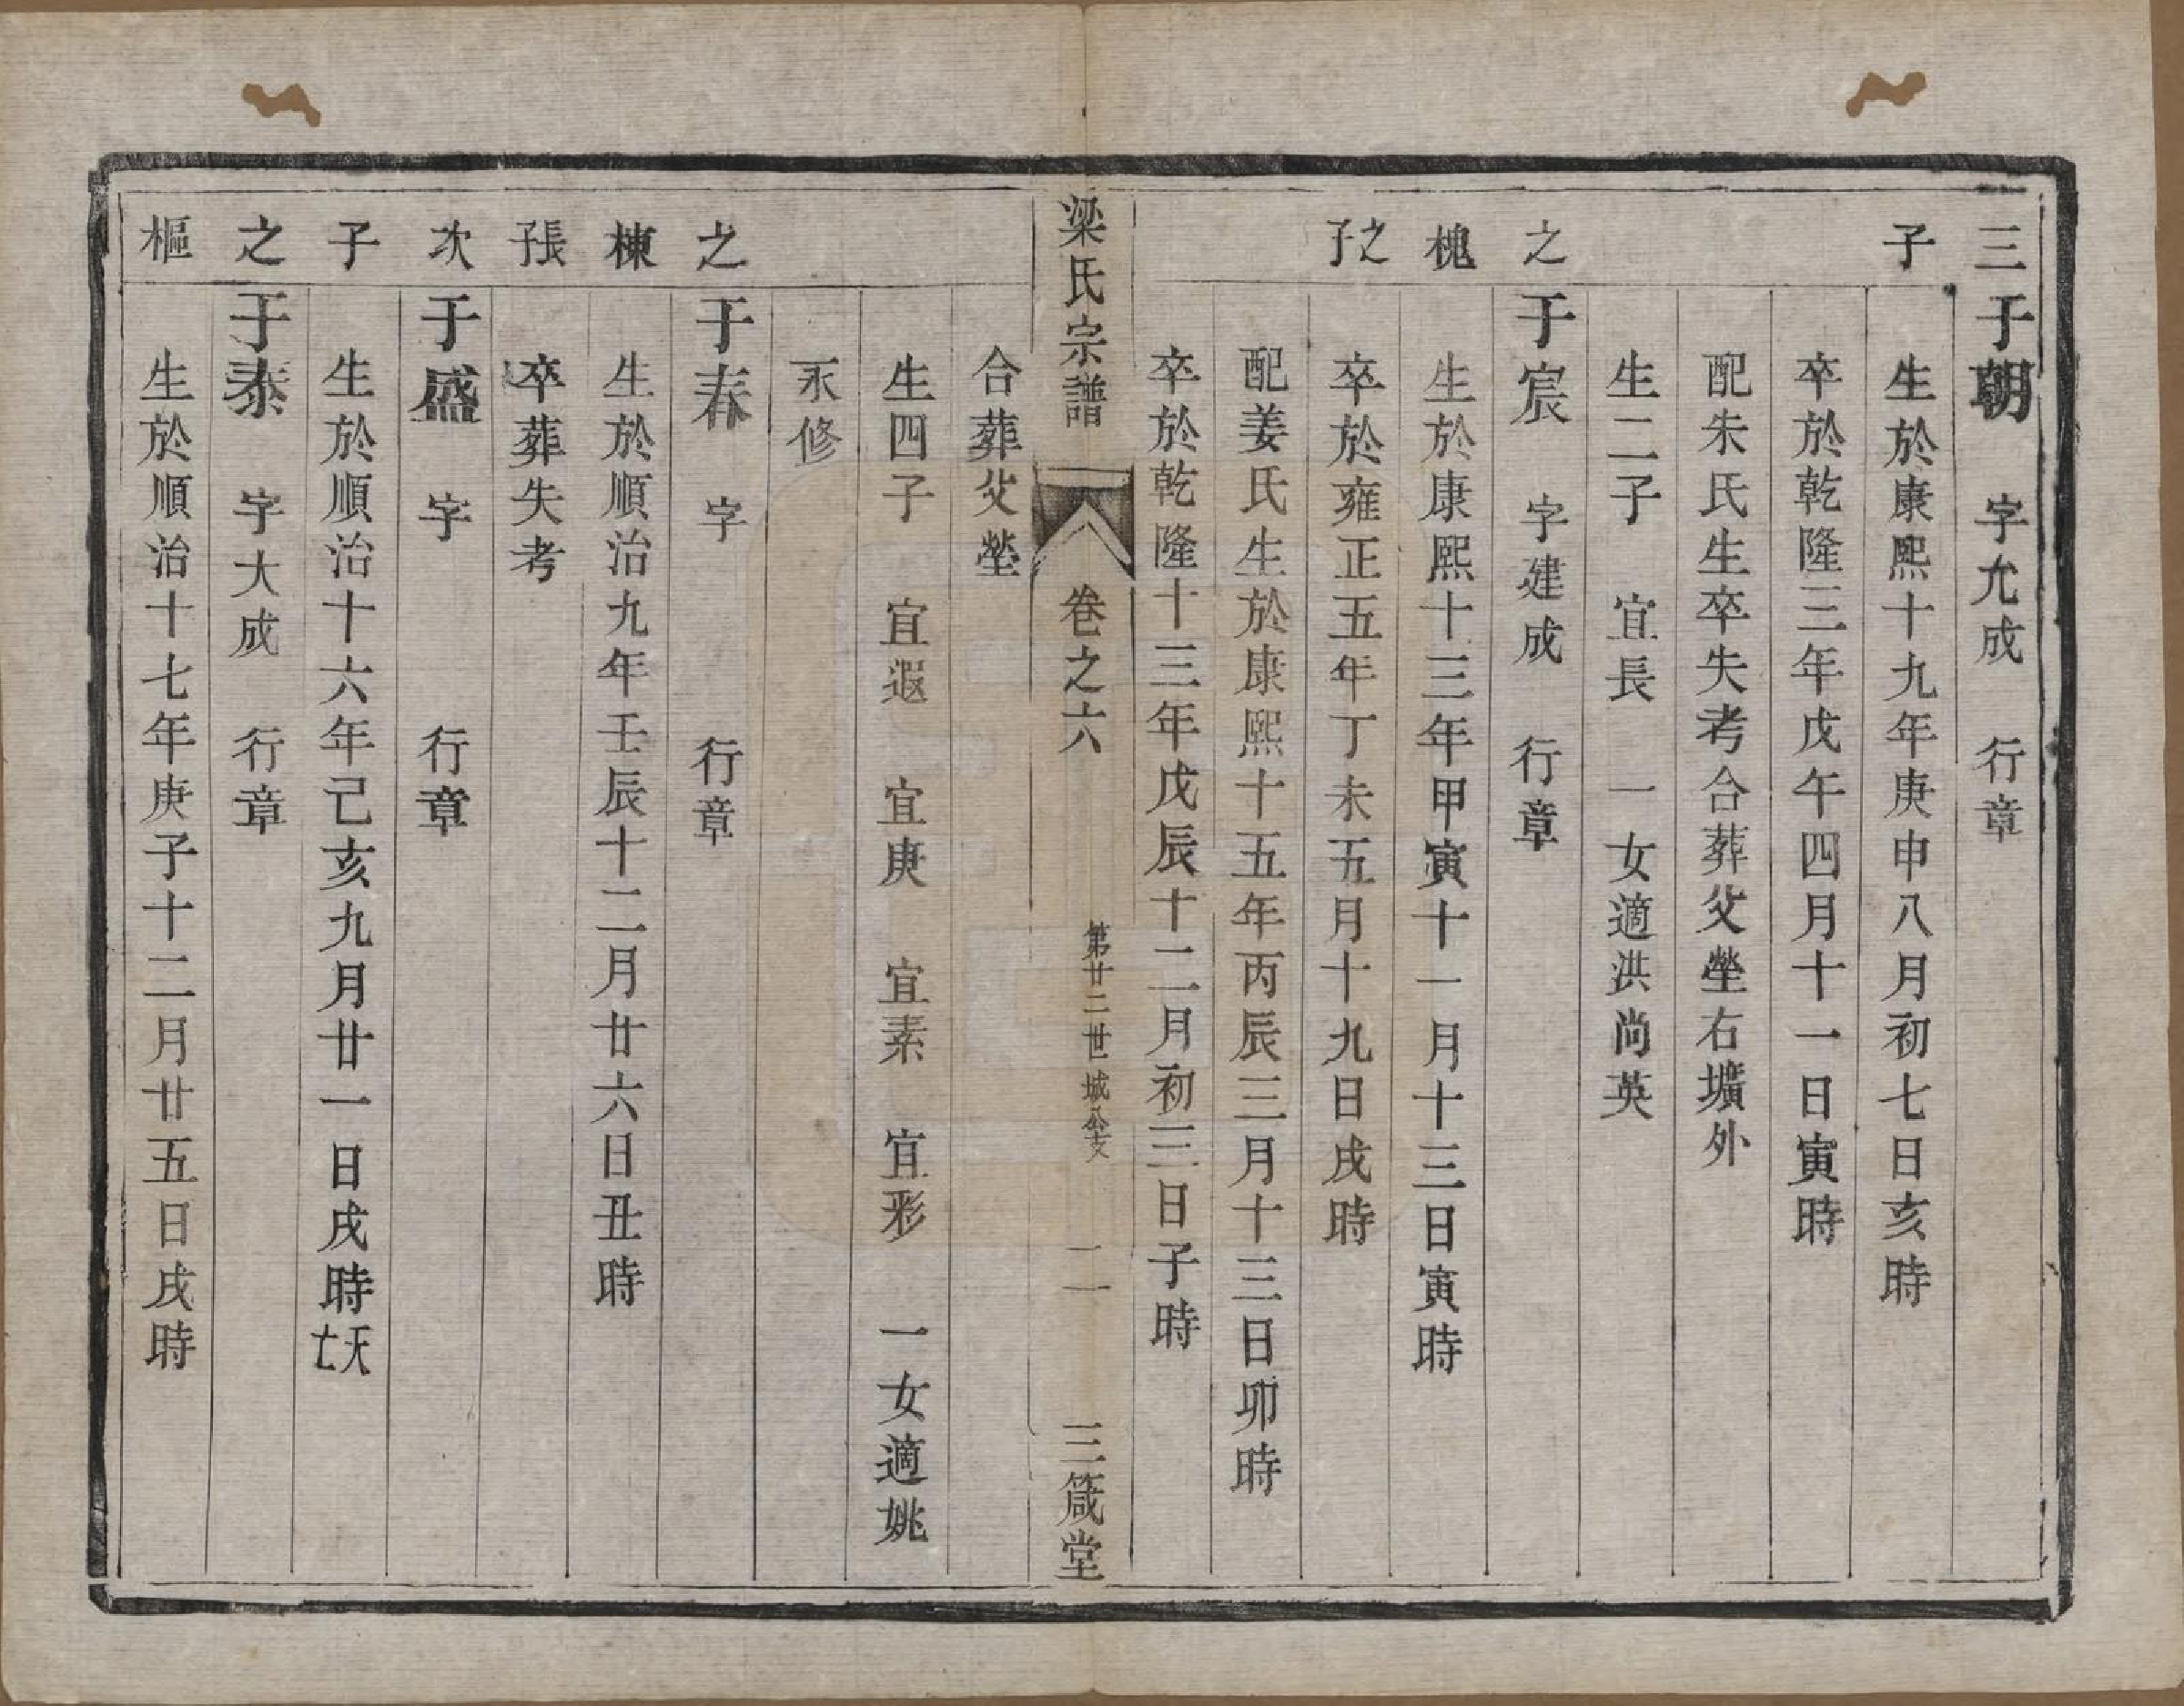 三 于朝 字允成 行章
子 生於康熙十九年庚申八月初七日亥時
卒於乾隆三年戊午四月十一日寅時
配朱氏生卒失考合葬父塋右壙外
生二子 宜長 一女適洪尚英
之 于宸 字建成 行章
槐 生於康熙十三年甲寅十一月十三日寅時
之子 卒於雍正五年丁未五月十九日戌時
配姜氏生於康熙十五年丙辰三月十三日卯時
卒於乾隆十三年戊辰十二月初三日子時
梁氏宗譜 卷之六 第廿二世 城公支 二一 三箴堂
合葬父塋
生四子 宜遐 宜庚 宜素 宜彩 一女適姚
永修
之 于春 字 行章
棟 生於順治九年壬辰十二月廿六日丑時
張子 卒葬失考
次 于盛 字 行章
子 生於順治十六年己亥九月廿一日戌時夭亡
之 于泰 字大成 行章
樞 生於順治十七年庚子十二月廿五日戌時